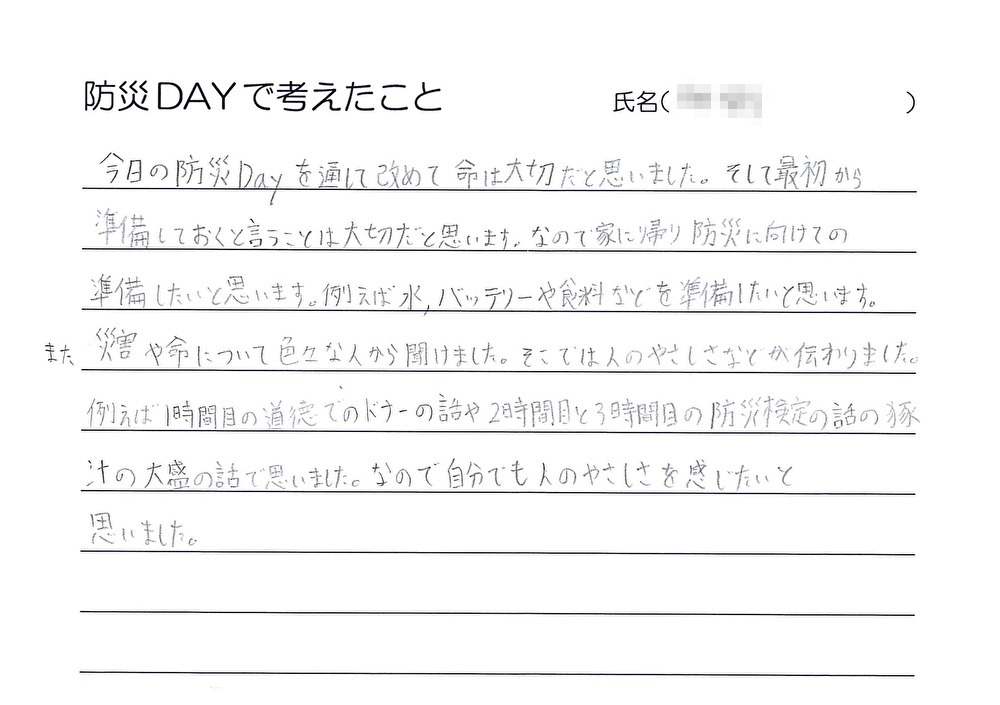 防災DAYで考えたこと 氏名( )
今日の防災Dayを通して改めて命は大切だと思いました。そして最初から
準備しておくと言うことは大切だと思います。なので家に帰り防災に向けての
準備したいと思います。例えば水,バッテリーや食料などを準備したいと思います。
また 災害や命について色々な人から聞けました。そこでは人のやさしさなどが伝わりました。
例えば1時間目の道徳でのドナーの話や2時間目と3時間目の防災検定の話の豚
汁の大盛の話で思いました。なので自分でも人のやさしさを感じたいと
思いました。